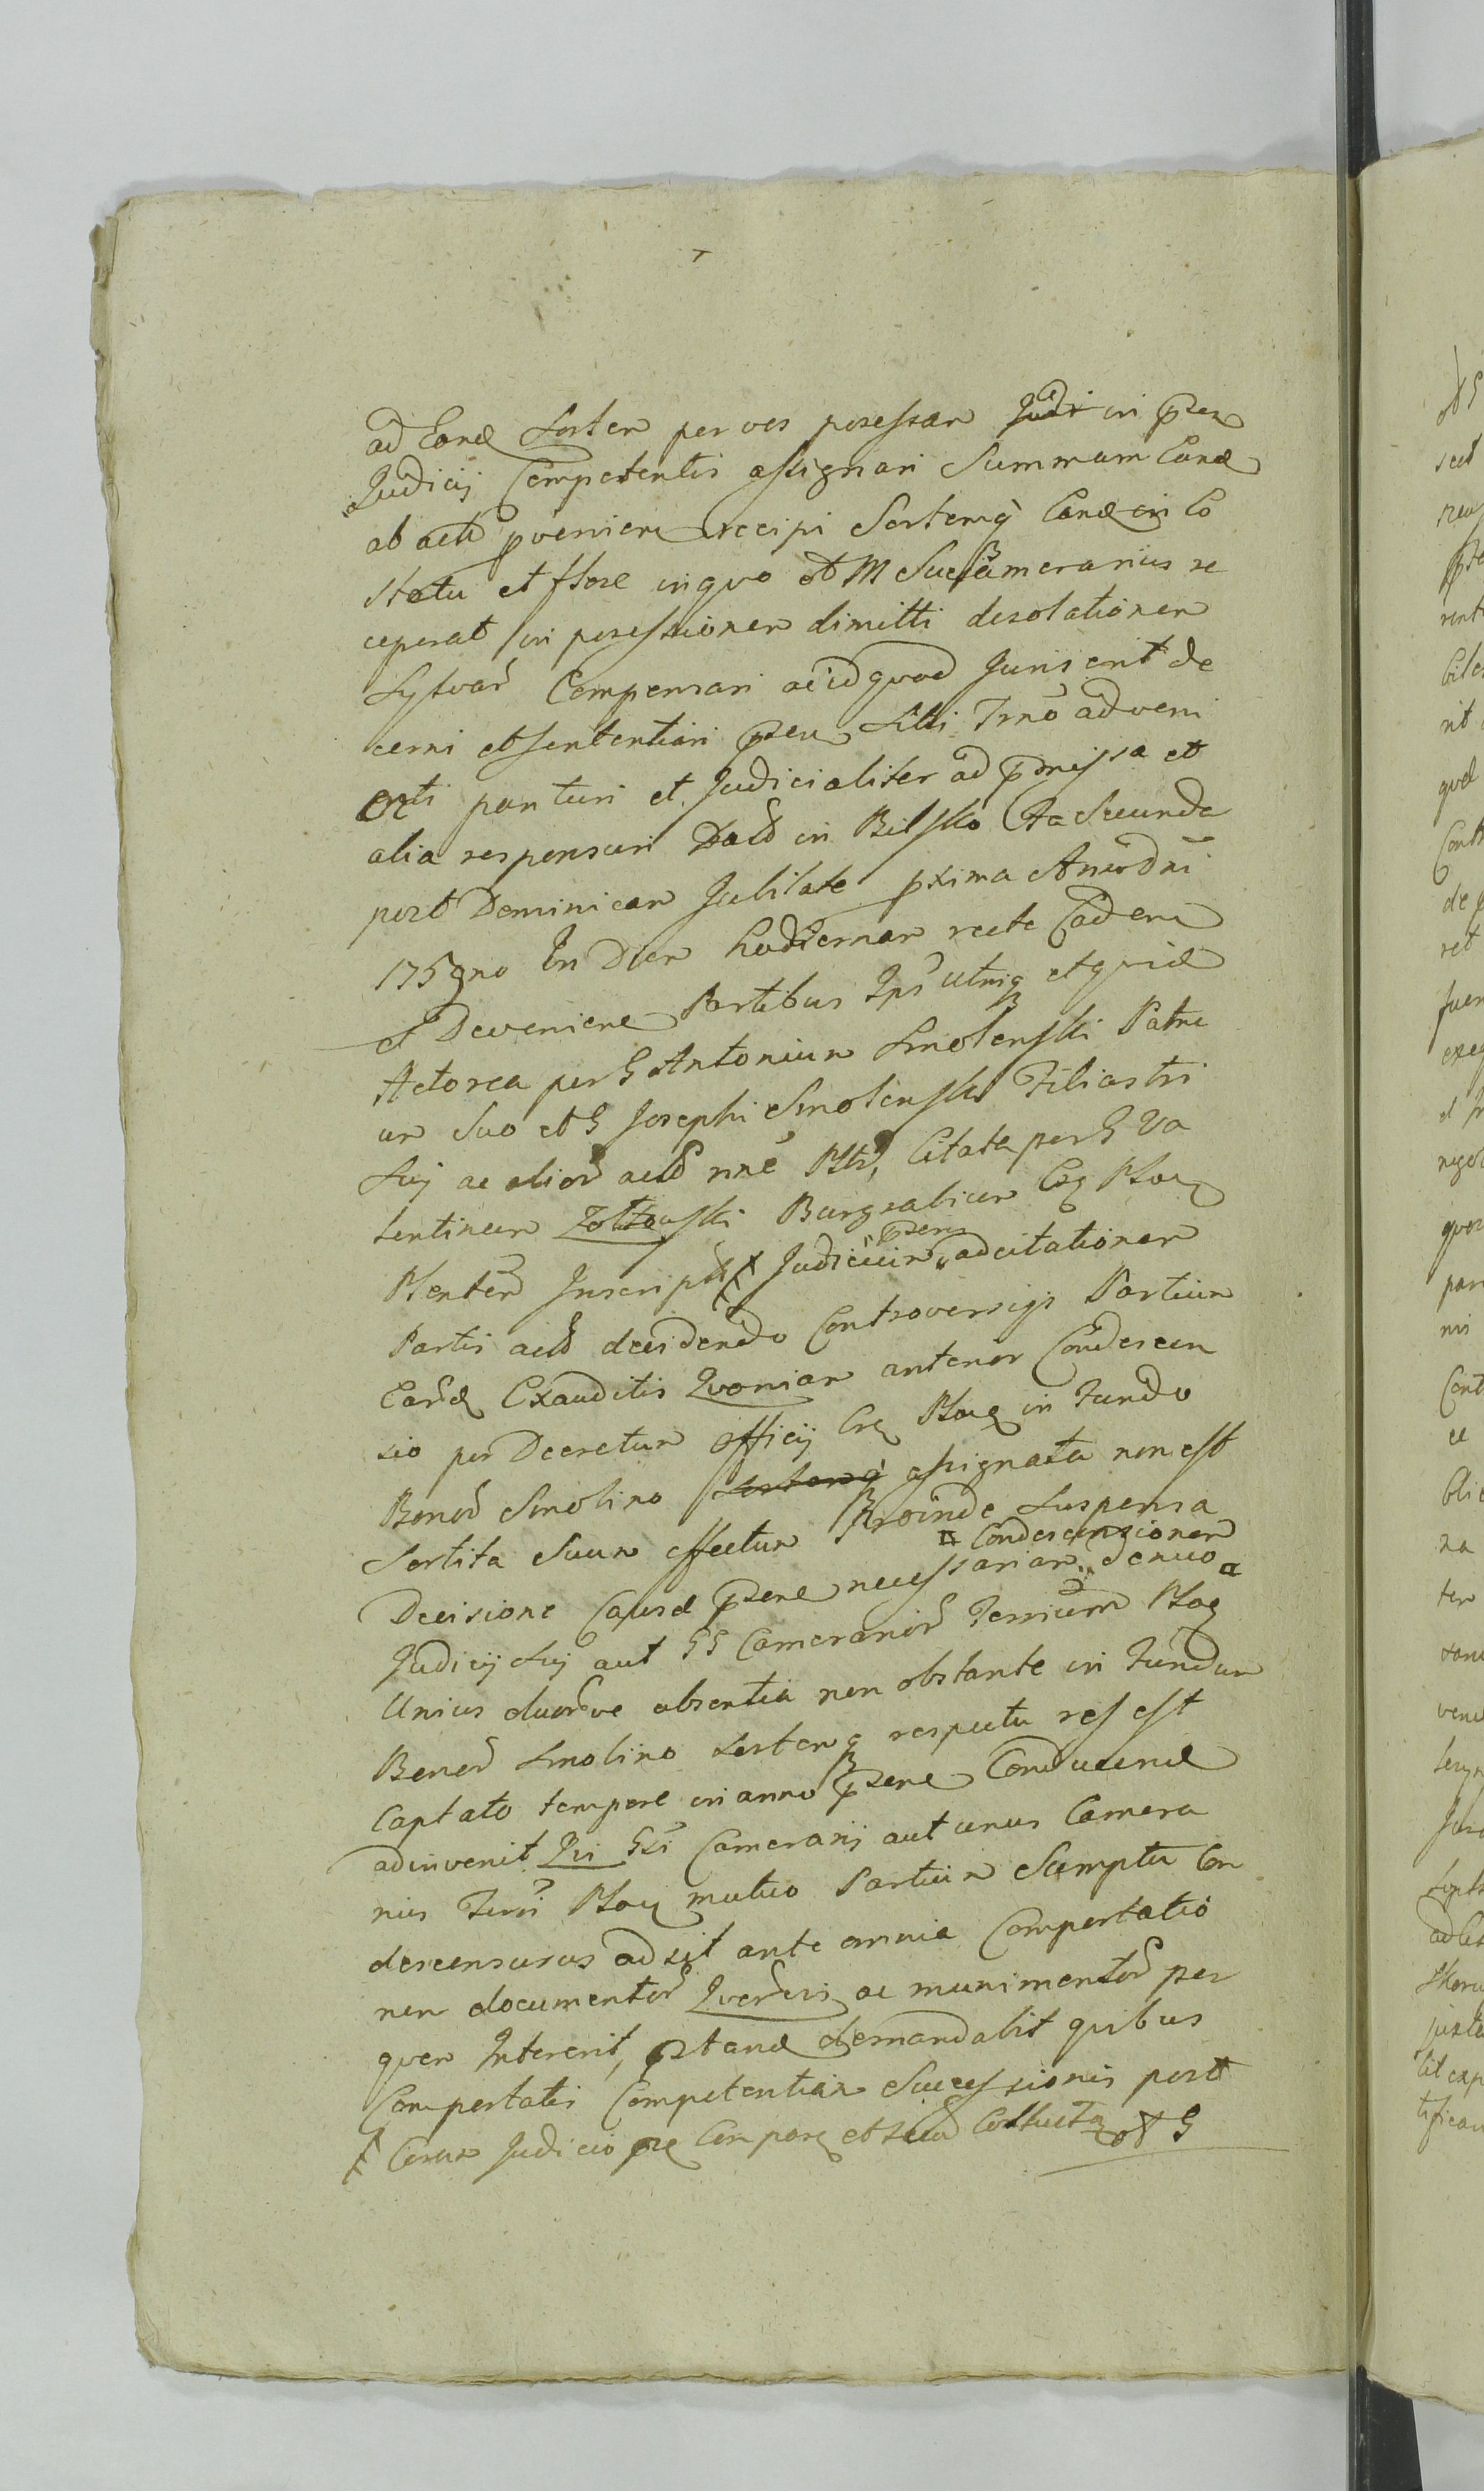 ad Eand Sortem per vos possessam Judi in pser
Judicij Competentis assignari Summam Eand
ab actu provenien recipi Sortemq Eand in Eo
Statu et flore in quo ol M Succamerarius re
ceperat in possessionem dimitti desolationem
Sylvar Compensari ac id quod Juris erit de
cerni et sententiari pser Litti Trno adveni
enti parituri et Judicialiter ad pmissa et
alia responsuri Datt in Bilsko Fa Secunda
post Dominicam Jubilate pxima Anno dni
1759no In Diem hodiernam recte Caden
et Devenien Partibus Ips utrisq et quid
Actorea per G Antonium Smolenski Patre
un Suo et G Josephi Smolenski Filiastri
Sui ac alior actt nne Pltt, Citata per G Va
lentinum Zoltowski Burgrabium Cas Ploc
Plenten Inscript Judicium psens ad citationem
Partis actt decidendo Controversijs Partium
Eard Exauditis Quoniam anterior Condescen
sio per Decretum Officij Cas Ploc in Fundo
Bonor Smolino Sortemq assignata non est
Sortita Suum effectum Proinde Suspensa
Decisione Causae psen necessariam Condescensionem Denuo
Judicij Sui aut GG Camerarior Terrium Ploc
Unius duorve absentia non obstante in Fundum
Bonor Smolino Sortemq respectu res est
Captato tempore in anno psen Conducend
adinvenit Qui Gsi Camerarij aut unus Camera
rius Terris Ploc mutuo Partium Sumptu Con
descensurus adsit ante omnia Comportatio
nem documentor Quorumvis ac munimentor per
quem Intererit, pstand demandabit quibus
Comportatis Competentiam Successionis post
Coram Judicio pse Compars et Scitt Collucta ol G